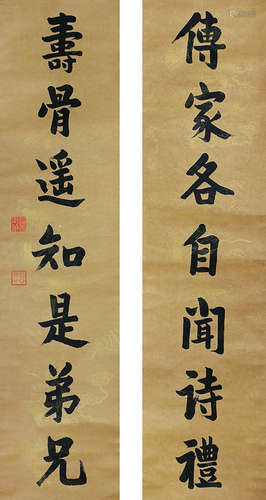 傳家各自聞诗禮
壽骨遥知是弟兄